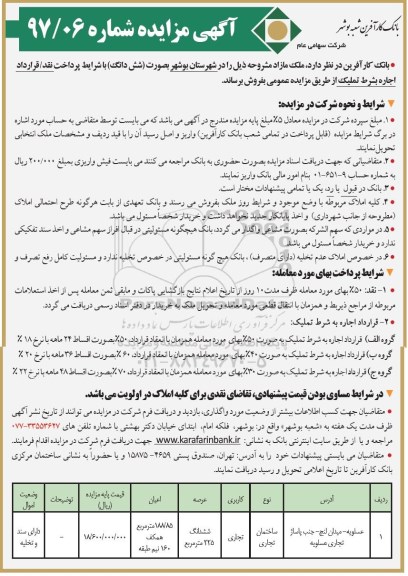 بانک کارآفرین شعبه بوشهر
شرکت سهامی عام
آگهی مزایده شماره ۹۷/۰۶
بانک کارآفرین در نظر دارد، ملک مازاد مشروحه ذیل را در شهرستان بوشهر بصورت (شش دانگ) با شرایط پرداخت نقد/قرارداد
اجاره بشرط تملیک از طریق مزایده عمومی بفروش برساند.
شرایط و نحوه شرکت در مزایده:
۱. مبلغ سپرده شرکت در مزایده معادل ۵٪مبلغ پایه مزایده مندرج در آگهی می باشد که می بایست توسط متقاضی به حساب مورد اشاره
در برگ شرایط مزایده (قابل پرداخت در تمامی شعب بانک کارآفرین) واریز و اصل رسید آن را با قید ردیف و مشخصات ملک انتخابی
تحویل نمایند.
۲. متقاضیانی که جهت دریافت اسناد مزایده بصورت حضوری به بانک مراجعه می کنند می بایست فیش واریزی بمبلغ ۲۰۰/۰۰۰ ریال
به شماره حساب ۹-۶۵۱-۰۱ بنام امور مالی بانک واریز نمایند.
۳. بانک در قبول یا رد، یک یا تمامی پیشنهادات مختار است.
۴. کلیه املاک مربوطه با وضع موجود و شرایط روز ملک بفروش می رسند و بانک تعهدی از بابت هرگونه طرح احتمالی املاک
(مطروحه از جانب شهرداری) و اخذ پایانکار جدید نخواهد داشت و خریدار شخصاً مسئول می باشد.
۵. در مواردی که سهم الشرکه بصورت مشاعی واگذار می گردد، بانک هیچگونه مسئولیتی در قبال افراز سهم مشاعی و اخذ سند تفکیکی
ندارد و خریدار شخصاً مسئول می باشد.
۶. در خصوص املاک عدم تخلیه (دارای متصرف)، بانک هیچ گونه مسئولیتی در خصوص تخلیه ندارد و مسئولیت کامل رفع تصرف و
شرایط پرداخت بهای مورد معامله:
۱- نقد: ۵۰٪ بهای مورد معامله ظرف مدت ۱۰ روز از تاریخ اعلام نتایج بازگشایی پاکات و مابقی ثمن معامله پس از اخذ استعلامات
مربوطه از مراجع ذیربط و همزمان با انتقال قطعی مورد معامله و تحویل ملک به خریدار در دفتر اسناد رسمی دریافت می گردد.
۲- قرارداد اجاره به شرط تملیک:
گروه الف) قرارداد اجاره به شرط تملیک به صورت ۵۰٪ بهای مورد معامله همزمان با انعقاد قرارداد ۵۰٪ بصورت اقساط ۲۴ ماهه با نرخ ۱۸٪
گروه ب) قرارداد اجاره به شرط تملیک به صورت ۴۰٪ بهای مورد معامله همزمان با انعقاد قرارداد ۶۰٪ بصورت اقساط ۳۶ ماهه با نرخ ۲۰٪
گروه ج) قرارداد اجاره به شرط تملیک به صورت ۳۰٪ بهای مورد معامله همزمان با انعقاد قرارداد ۷۰٪ بصورت اقساط ۴۸ ماهه با نرخ ۲۲٪
در شرایط مساوی بودن قیمت پیشنهادی، تقاضای نقدی برای کلیه املاک در اولویت می باشد.
متقاضیان جهت کسب اطلاعات بیشتر از وضعیت مورد واگذاری، بازدید و دریافت فرم شرکت در مزایده می توانند از تاریخ نشر آگهی
ظرف مدت یک هفته به «شعبه بوشهر» واقع در: بوشهر، فلکه امام، ابتدای خیابان دکتر بهشتی با شماره تلفن های ۳۳۵۵۳۶۲۷-۰۷۷
مراجعه و یا از طریق سایت اینترنتی بانک به نشانی: www.karafarinbank.ir جهت دریافت فرم شرکت در مزایده اقدام فرمایند.
متقاضیان می بایستی پیشنهادات خود را به آدرس: تهران، صندوق پستی ۴۶۵۹-۱۵۸۷۵ و یا حضوراً به نشانی ساختمان مرکزی
بانک کارآفرین تا تاریخ اعلامی تحویل و رسید دریافت نمایند.
ردیف آدرس نوع کاربری عرصه اعیان قیمت پایه مزایده (ریال) توضیحات وضعیت اموال
۱ عسلویه- میدان لنج- جنب پاساژ تجاری عسلویه ساختمان تجاری تجاری ششدانگ ۲۲۵ مترمربع ۱۸۸/۸۵مترمربع همکف ۱۶۰ نیم طبقه ۱۸/۶۰۰/۰۰۰/۰۰۰ - دارای سند و تخلیه